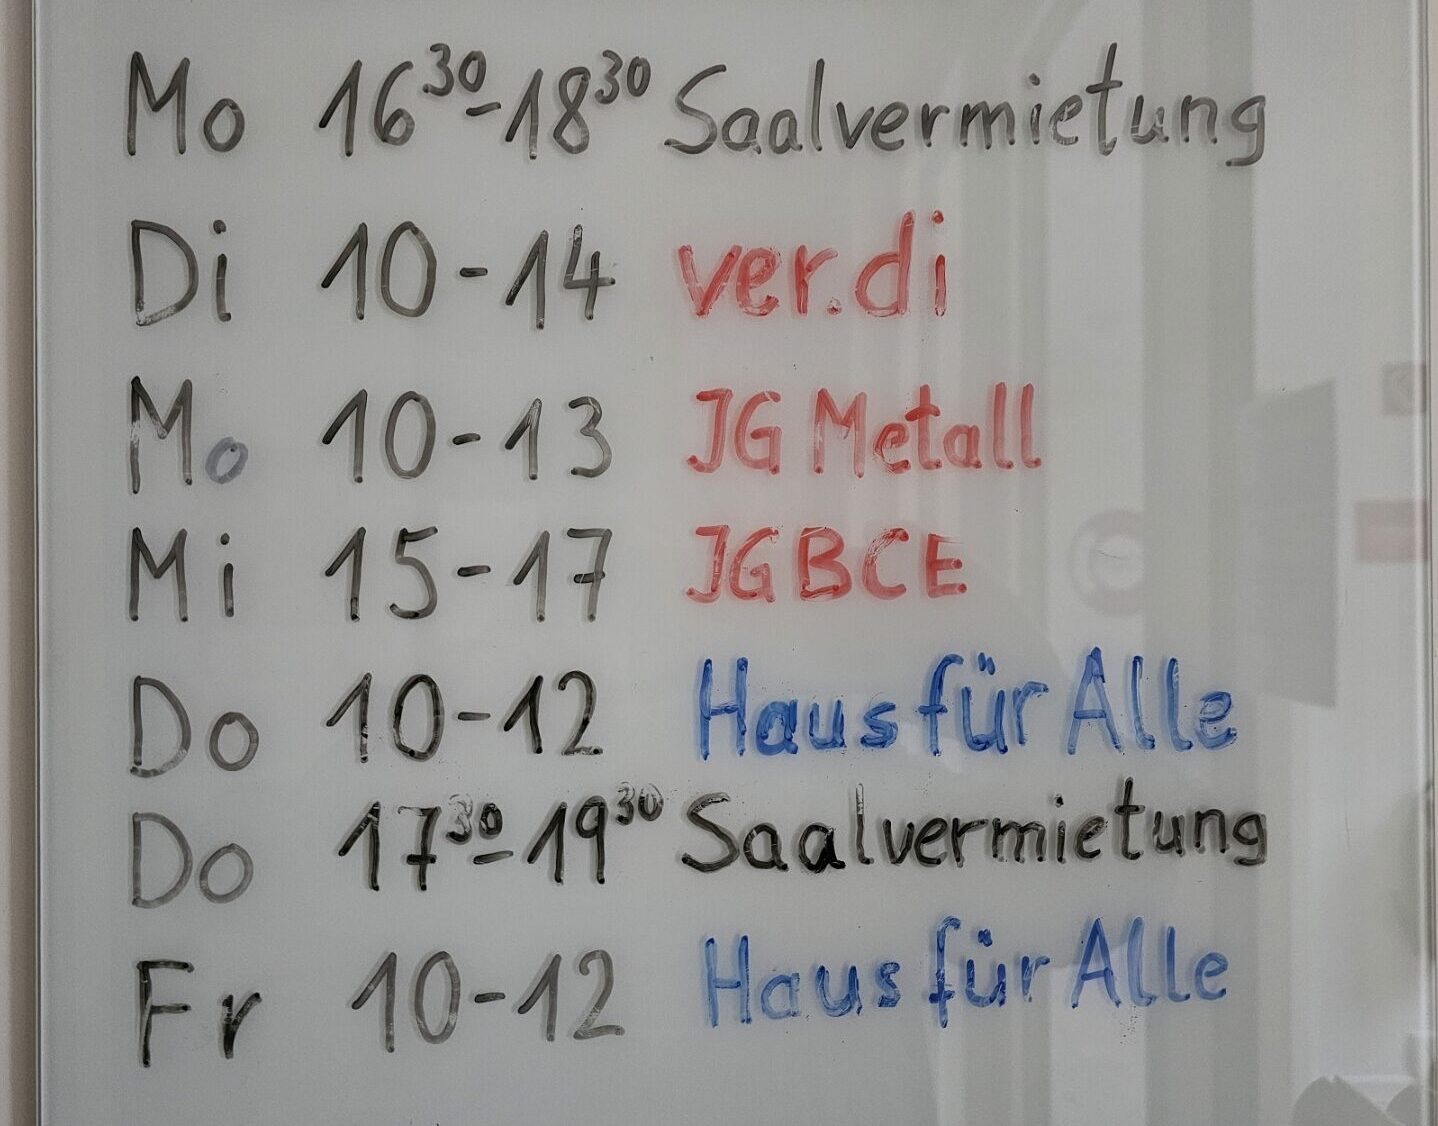 Mo 16³⁰-18³⁰ Saalvermietung
Di 10-14 ver.di
Mo 10-13 IG Metall
Mi 15-17 IGBCE
Do 10-12 Haus für Alle
Do 17³⁰-19³⁰ Saalvermietung
Fr 10-12 Haus für Alle